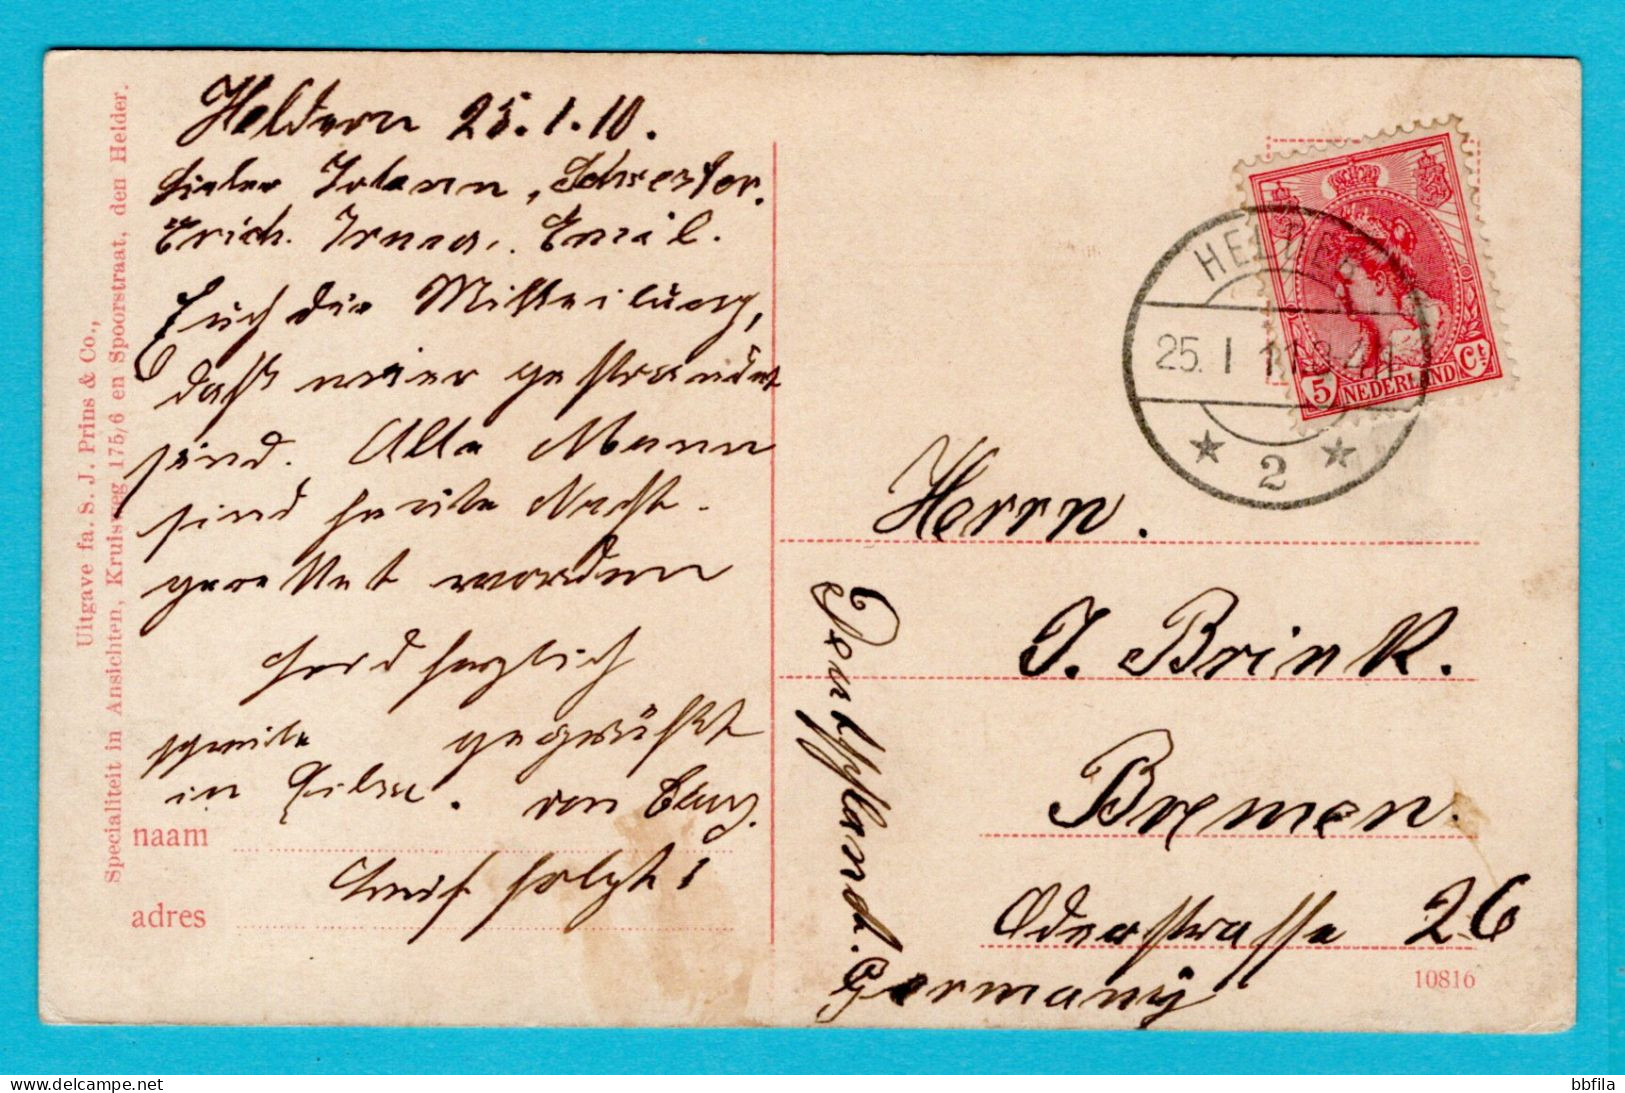 Heldern 25.1.10.
Lieber Johann, Schwester.
Erich. Irma, Emil.
Euch die Mitteilung,
daß wir gestrandet
sind. Alle Mann
sind heute Nacht
gerettet worden
herzlich
gegrüßt
in Eile. von
Brief folgt!
naam
adres
Uitgave fa. S. J. Prins & Co.,
Specialiteit in Ansichten, Kruisweg 175/6 en Spoorstraat, den Helder.
HELDER
25. 1 11
2
5 NEDERLAND Ct
Herrn.
J. Brink.
Bremen.
Oderstrasse 26
Deutschland.
Germany
10816
bbfila